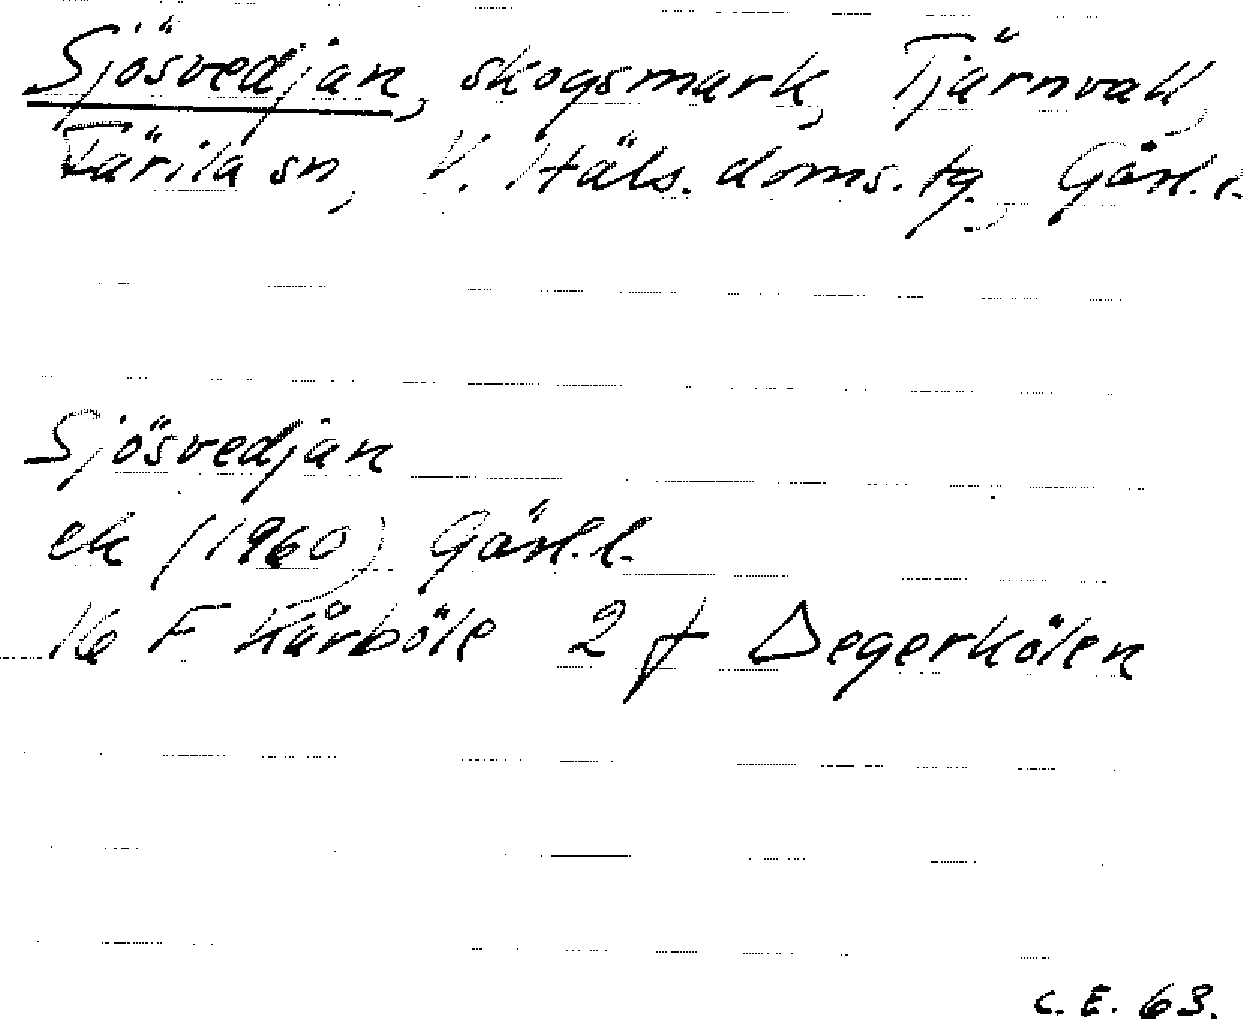 Sjösvedjan, skogsmark, Tjärnvall,
Färila sn, V. Häls. doms. tg., Gävl. l.
Sjösvedjan
ek (1960) Gävl. l.
16 F Kårböle 2 f Degerkölen
C. E. 63.